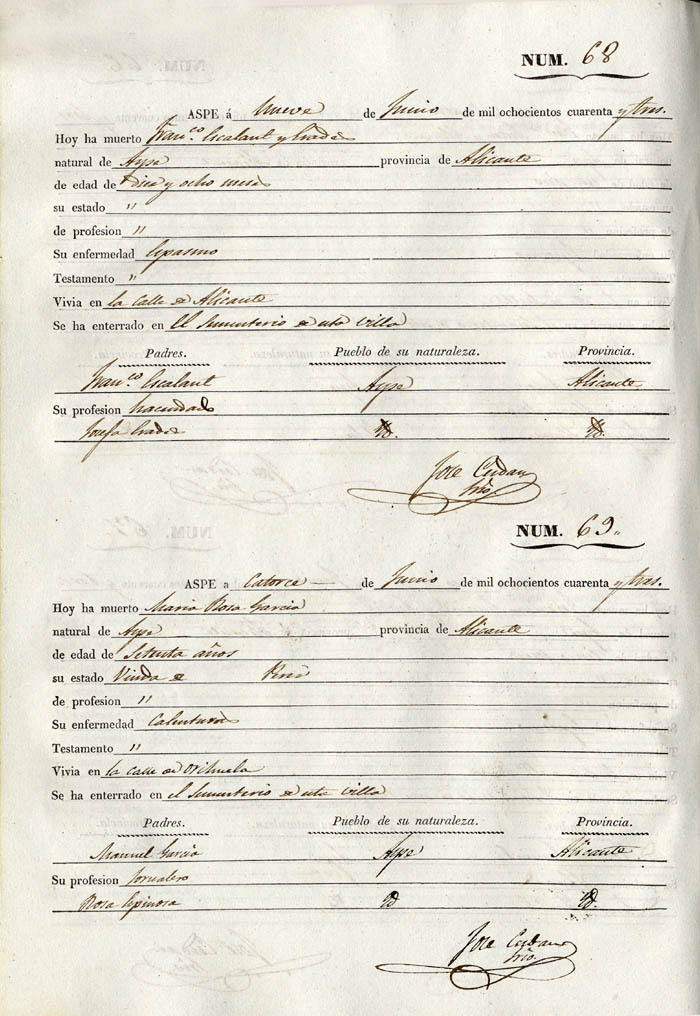 NUM. 68
ASPE á Nueve de Junio de mil ochocientos cuarenta y tres.
Hoy ha muerto Fran.co Escalant y Prades
natural de Aspe provincia de Alicante
de edad de Diez y ocho meses
su estado "
de profesion "
Su enfermedad Espasmo
Testamento "
Vivia en la calle de Alicante
Se ha enterrado en El Sumenterio de esta villa
Padres. Pueblo de su naturaleza. Provincia.
Fran.co Escalant Aspe Alicante
Su profesion hacendado
Josefa Prades Id. Id.
Jose Cerdan
NUM. 69"
ASPE a Catorce de Junio de mil ochocientos cuarenta y tres.
Hoy ha muerto Maria Rosa Garcia
natural de Aspe provincia de Alicante
de edad de Setenta años
su estado Viuda de
de profesion "
Su enfermedad Calenturas
Testamento "
Vivia en la calle de Orihuela
Se ha enterrado en el Sumenterio de esta villa
Padres. Pueblo de su naturaleza. Provincia.
Manuel Garcia Aspe Alicante
Su profesion Jornalero
Rosa Espinosa Id Id.
Jose Cerdan